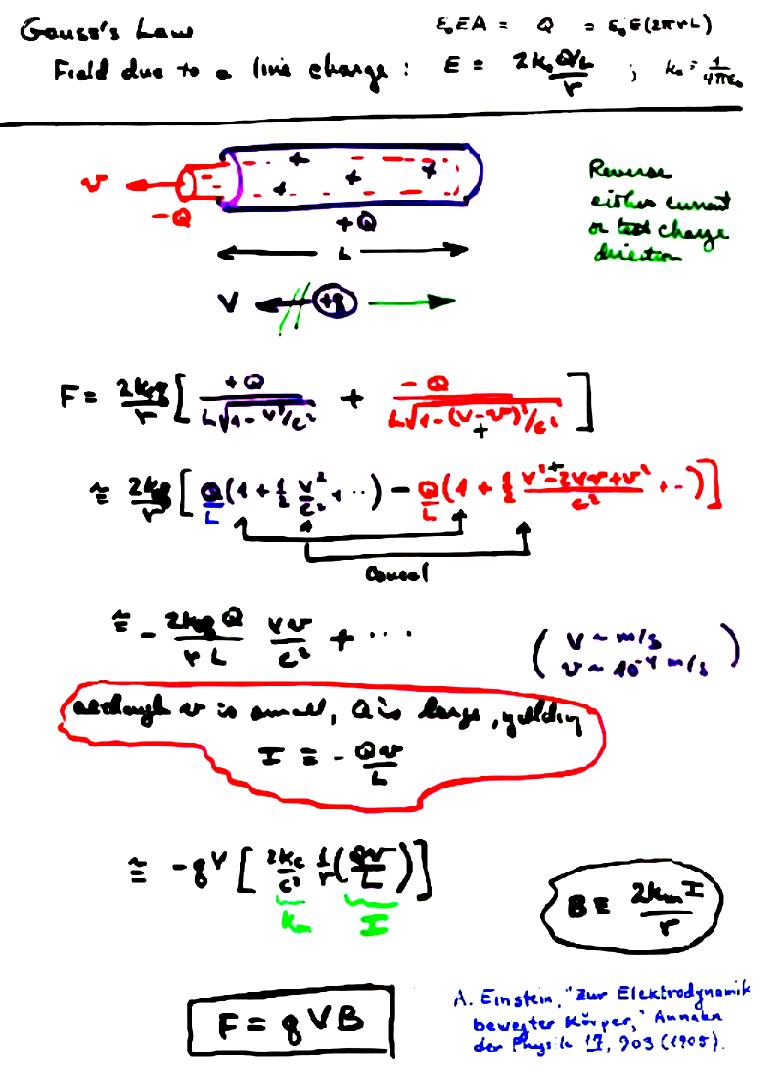 Gauss's Law    ε₀EA = Q = ε₀E(2πrL)
Field due to a line charge : E = 2kₑQ/L / r ; kₑ = 1/4πε₀
v
-Q
+Q
L
V +q
Reverse
either current
or test charge
direction
F = 2kₑq/r [ +Q / L√(1-V²/c²) + -Q / L√(1-(V-v)²/c²) ]
+
≅ 2kₑq/r [ Q/L (1 + 1/2 V²/c² + ··) - Q/L (1 + 1/2 (V²-2Vv+v²)/c² + ··) ]
+
Cancel
≅ - 2kₑqQ/rL Vv/c² + ···
( V ~ m/s
v ~ 10⁻⁴ m/s )
although v is small, Q is large, yielding
I ≡ - Qv/L
≅ -qV [ 2kₑ/c² 1/r (Qv/L) ]
kₘ I
B ≡ 2kₘI/r
F = qVB
A. Einstein, "Zur Elektrodynamik
bewegter Körper," Annalen
der Physik 17, 903 (1905).